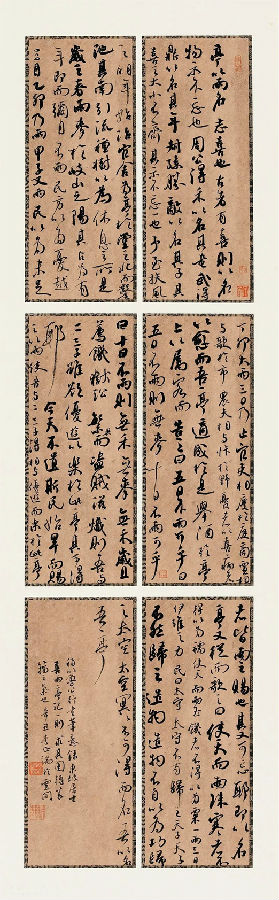 亭以雨名志喜也古者有喜則以名
物示不忘也周公得禾以名其書漢武得
鼎以名其年叔孫勝敵以名其子其
喜之大小不齊其示不忘一也予至扶風
之明年始治官舍為亭於堂之北而鑿
池其南引流種樹以為休息之所是
歲之春雨麥於岐山之陽其占為有
年既而彌月不雨民方以為憂越
三月乙卯乃雨甲子又雨民以為未足
丁卯大雨三日乃止官吏相與慶於庭商賈相
與歌於市農夫相與忭於野憂者以喜病者
以愈而吾亭適成於是舉酒於亭
上以屬客而告之曰五日不雨可乎曰
五日不雨則無麥十日不雨可乎
曰十日不雨則無禾無麥無禾歲且
薦饑獄訟繁興而盜賊滋熾則吾與
二三子雖欲優游以樂於此亭其可得
耶今天不遺斯民始旱而賜
之以雨使吾與二三子得相與優游而樂於此亭
者皆雨之賜也其又可忘耶既以名
亭又從而歌之曰使天而雨珠寒者不
得以為襦使天而雨玉饑者不得以為粟一雨三日
伊誰之力民曰太守太守不有歸之天子天子曰
不然歸之造物造物不自以為功歸
之太空太空冥冥不可得而名吾以名
吾亭